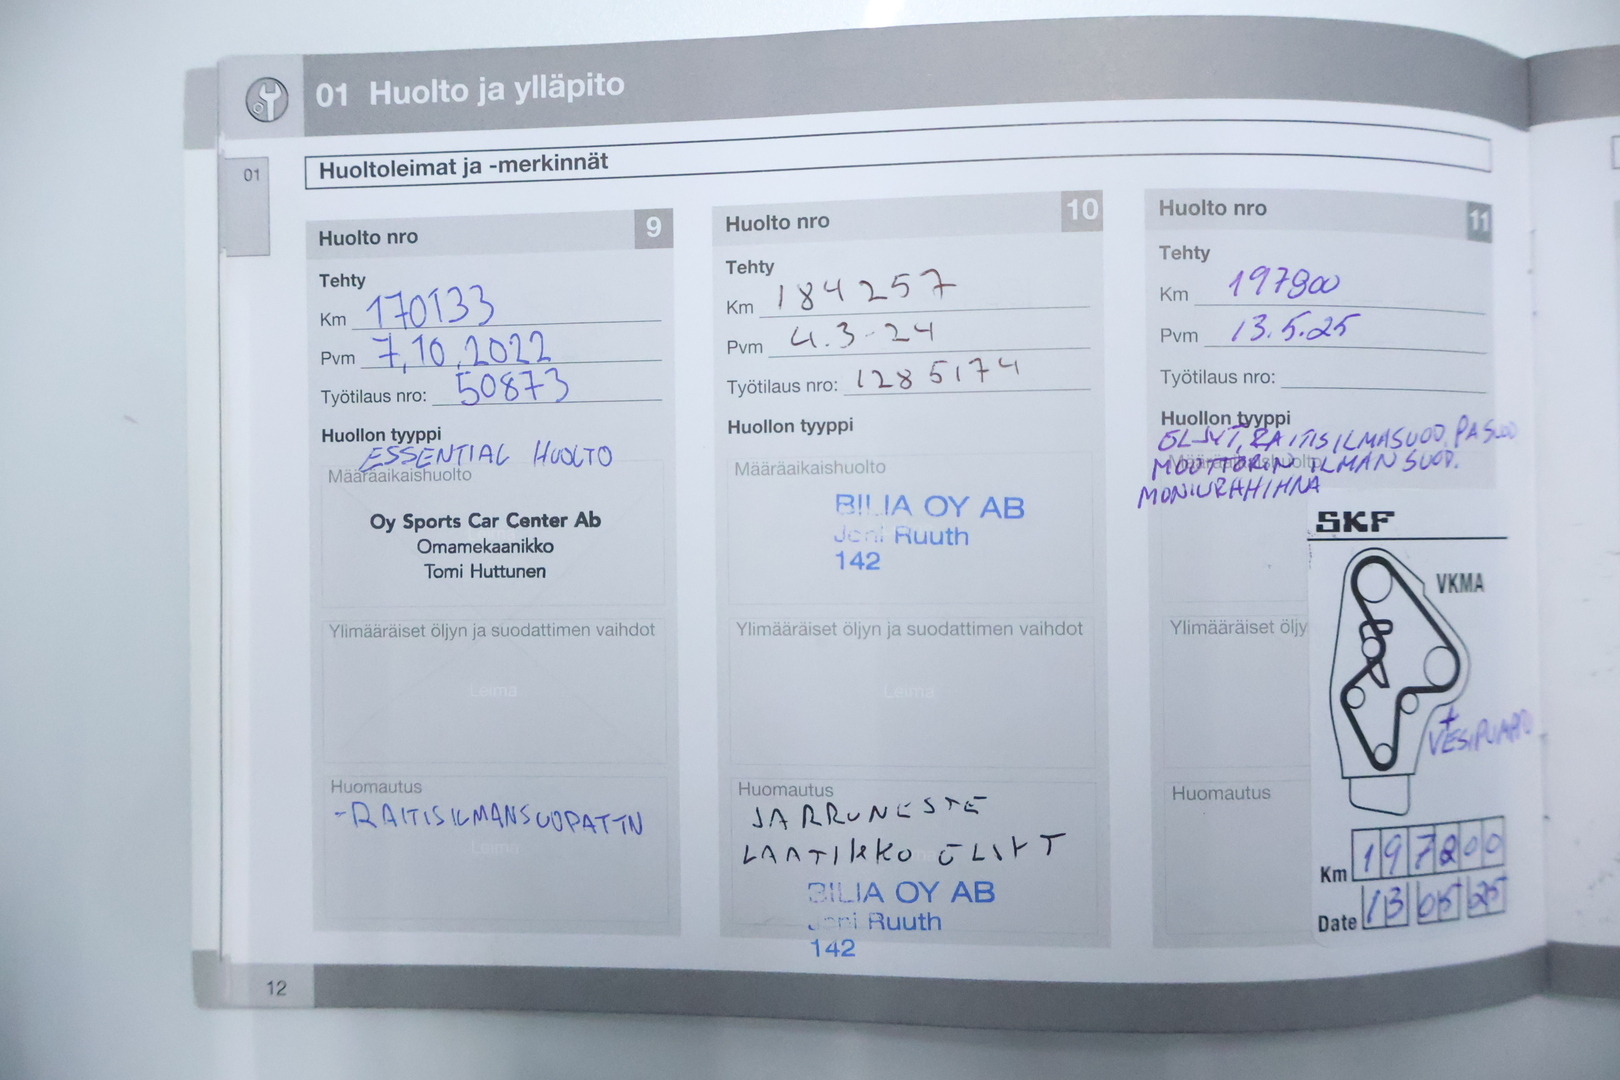 01 Huolto ja ylläpito
01
Huoltoleimat ja -merkinnät
Huolto nro 9
Tehty
Km 170133
Pvm 7.10.2022
Työtilaus nro: 50873
Huollon tyyppi
ESSENTIAL HUOLTO
Määräaikaishuolto
Oy Sports Car Center Ab
Omamekaanikko
Tomi Huttunen
Ylimääräiset öljyn ja suodattimen vaihdot
Leima
Huomautus
-RAITISILMANSUODATIN
Leima
Huolto nro 10
Tehty
Km 184257
Pvm 4.3-24
Työtilaus nro: 1285174
Huollon tyyppi
Määräaikaishuolto
BILIA OY AB
Joni Ruuth
142
Ylimääräiset öljyn ja suodattimen vaihdot
Leima
Huomautus
JARRUNESTE
LAATIKKO ÖLJYT
BILIA OY AB
Joni Ruuth
142
Huolto nro 11
Tehty
Km
Pvm 13.5.25
Työtilaus nro:
Huollon tyyppi
RAITISILMASUOD.
Määräaikaishuolto
MOOTTORIN ILMANSUOD.
MONIURAHIHNA
SKF
VKMA
Ylimääräiset öljy
+
VESIPUMPPU
Huomautus
Km 197200
Date 13 05 25
12